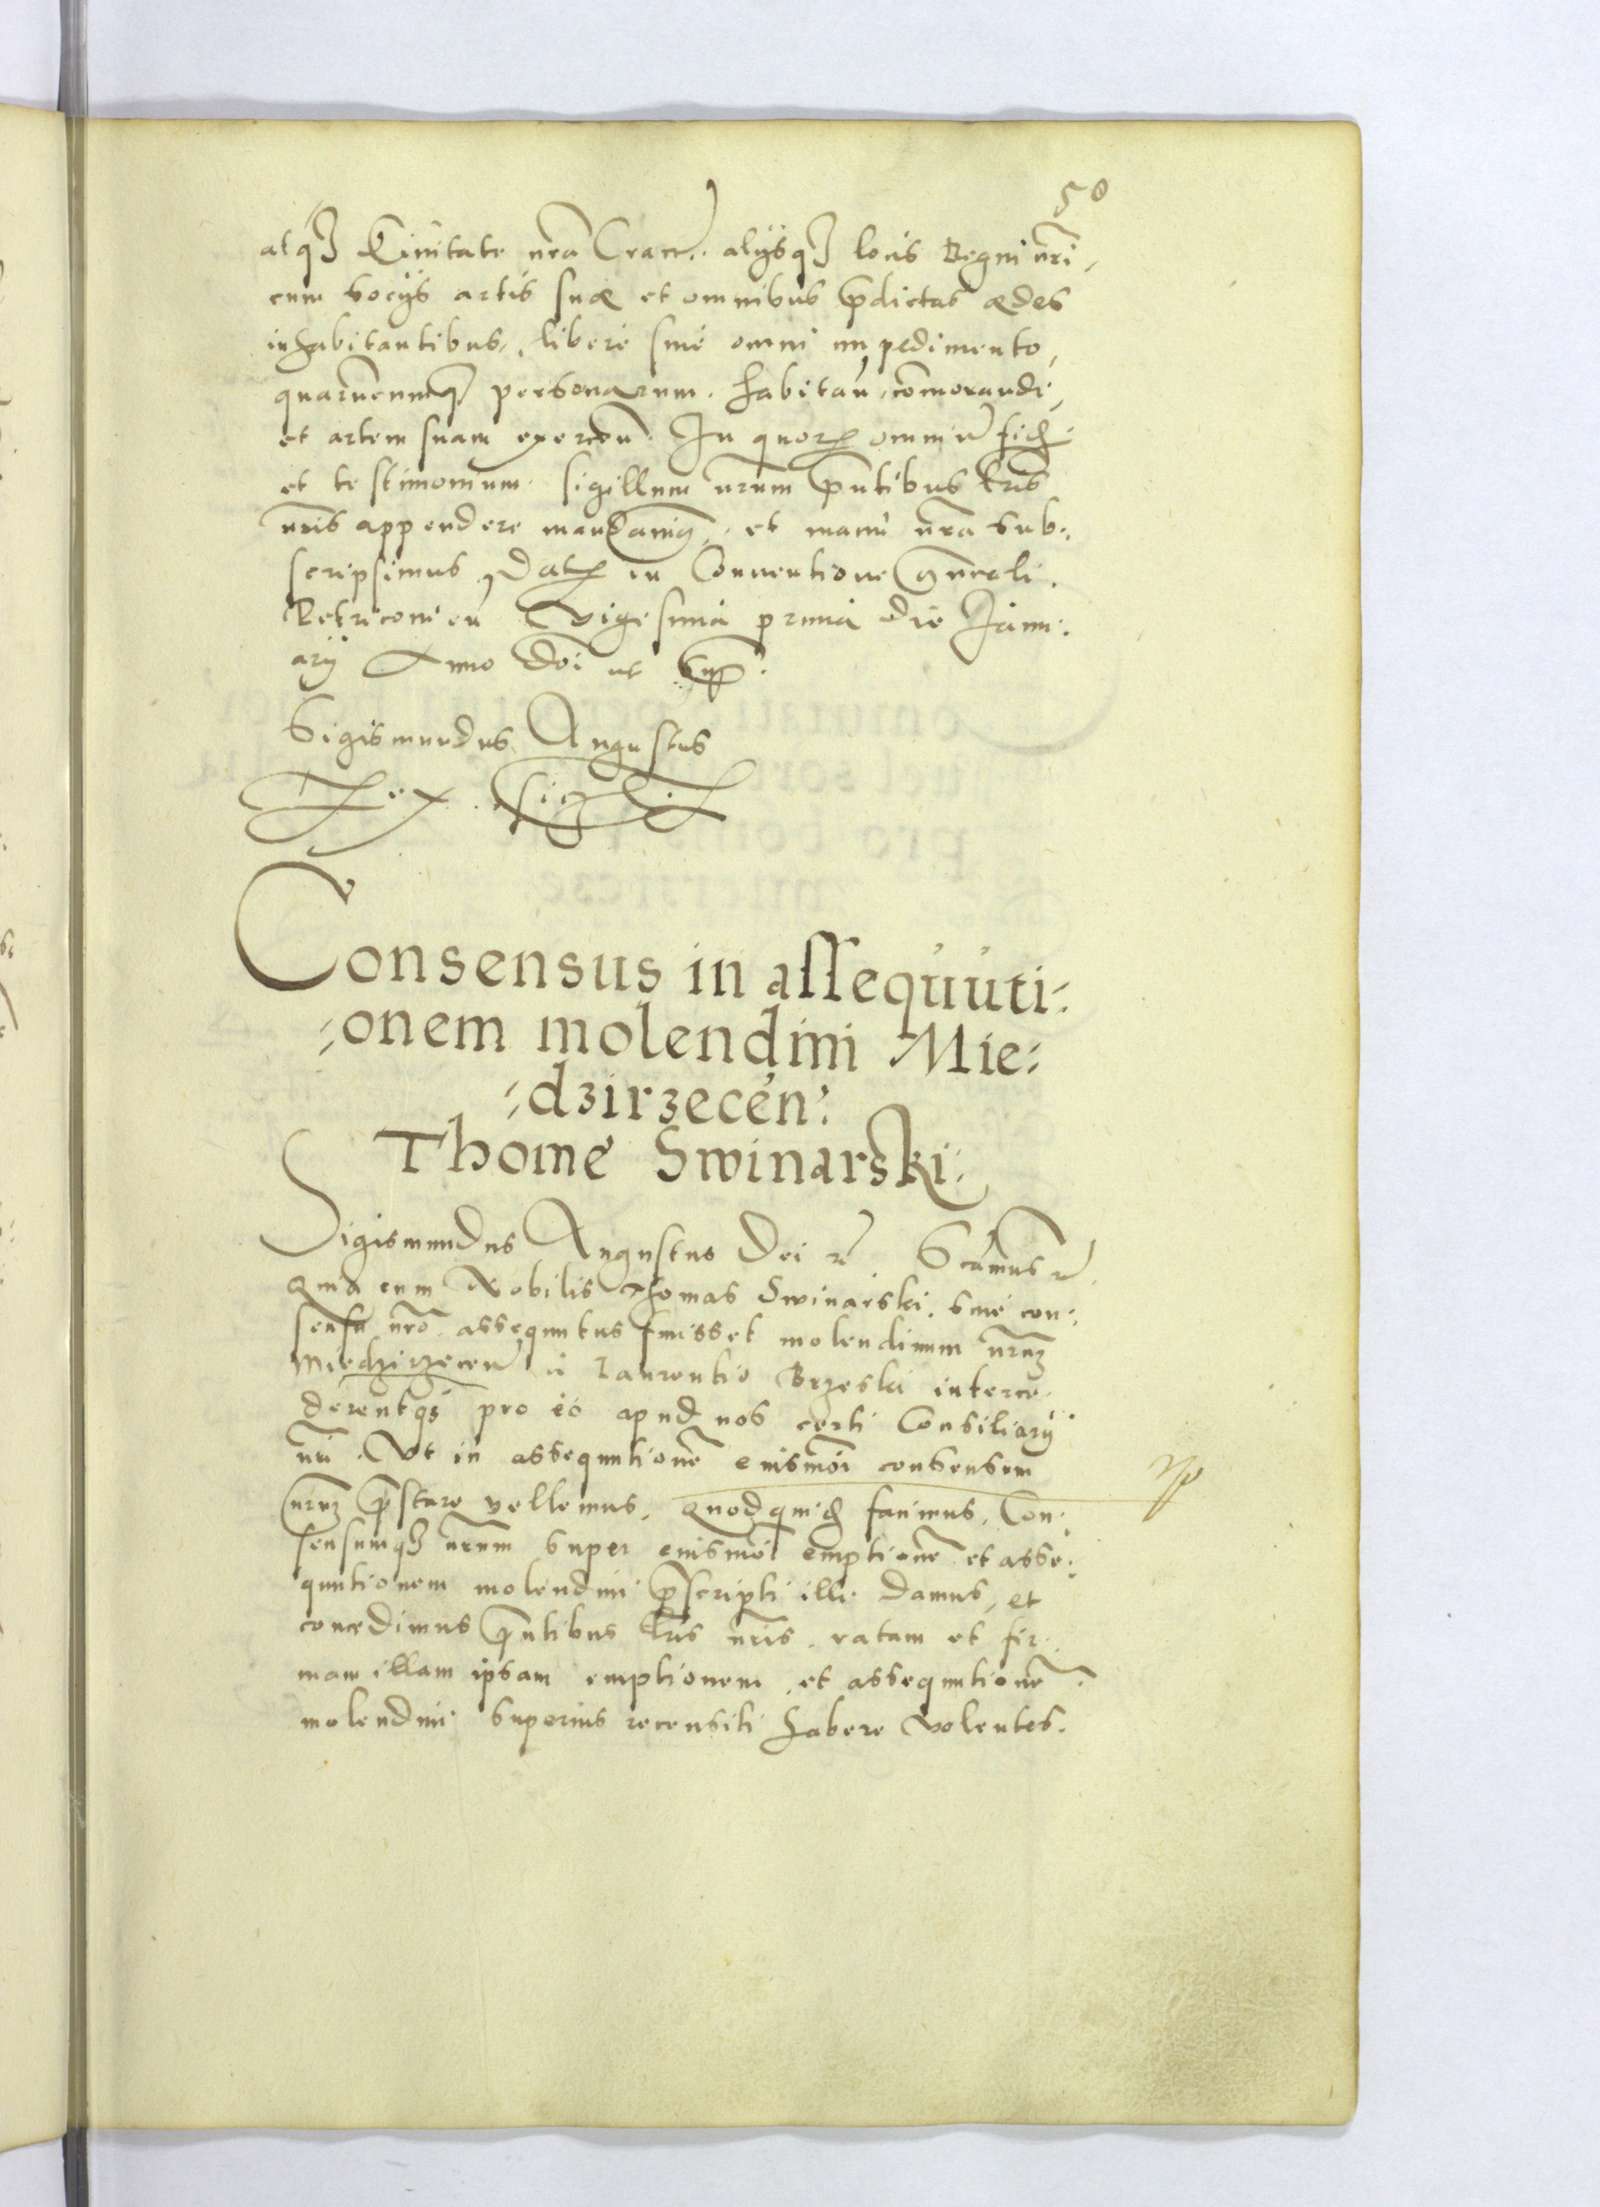 50
atq3 Ciuitate nrã Cracẽ. alÿsq3 locis Regni nri,
cum socÿs artis suæ et omnibus p̃dictas ædes
inhabitantibus, liberè sinè omni impedimento,
quarũcumq3 personarum. habitañ, cõmorandi,
et artem suam exerceñ. In quorꝝ omniũ fidẽ
et testimonium sigillum nrũm p̃ntibus lr̃is
nr̃is appendere mandauim9, et manu nr̃a sub:
scripsimus Datꝝ in Conuentione Gñrali
Petricouieñ Vigesima prima die Janu:
arÿ Anno Doi ut supr.
Sigismundus Augustus
Rex
Consensus in assequuti:
:onem molendini Mie:
:dzirzecen:
Thome Swinarski.
Sigismundus Augustus Dei &. Scimus &.
Quia cum Nobilis Thomas Swinarski sine con:
sensu nr̃o assequutus fuisset molendinum nr̃um
Miedzirzecen à Laurentio Brzeski interce:
derentq3 pro eo apud nos certi Consiliarÿ
nri. Vt in assequutionẽ eiusmoi consensum
nrum p̃stare vellemus. Quod quidẽ facimus, Con:
sensumq3 nrũm super eiusmoi emptionẽ et asse:
quutionem molendini p̃scripti illi damus, et
concedimus p̃ntibus lr̃is nr̃is. ratam et fir:
mam illam ipsam emptionem, et assequutionẽ
molendini superius recensiti habere volentes.